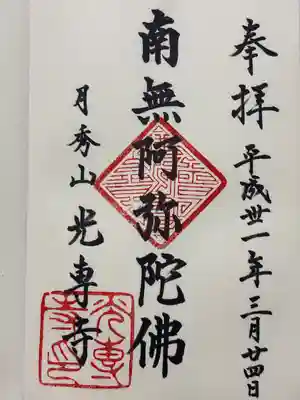 奉拝 平成丗一年三月廿四日
南無阿弥陀佛
月秀山 光専寺
光専寺印